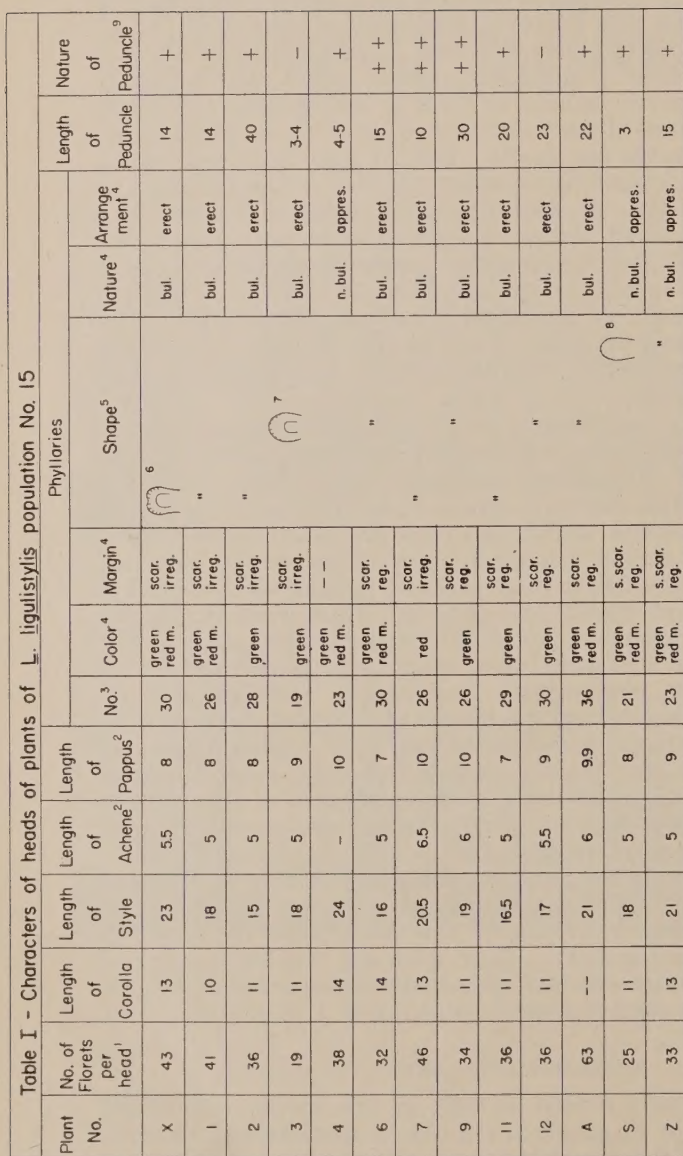 Table I - Characters of heads of plants of L. ligulistylis population No. 15
Plant No. | No. of Florets per head¹ | Length of Corolla | Length of Style | Length of Achene² | Length of Pappus² | Phyllaries | Length of Peduncle | Nature of Peduncle⁹
No.³ | Color⁴ | Margin⁴ | Shape⁵ | Nature⁴ | Arrange ment⁴
X | 43 | 13 | 23 | 5.5 | 8 | 30 | green red m. | scar. irreg. | 6 | bul. | erect | 14 | +
1 | 41 | 10 | 18 | 5 | 8 | 26 | green red m. | scar. irreg. | " | bul. | erect | 14 | +
2 | 36 | 11 | 15 | 5 | 8 | 28 | green | scar. irreg. | " | bul. | erect | 40 | +
3 | 19 | 11 | 18 | 5 | 9 | 19 | green | scar. irreg. | 7 | bul. | erect | 3-4 | -
4 | 38 | 14 | 24 | - | 10 | 23 | green red m. | -- | n. bul. | appres. | 4-5 | +
6 | 32 | 14 | 16 | 5 | 7 | 30 | green red m. | scar. reg. | " | bul. | erect | 15 | + +
7 | 46 | 13 | 20.5 | 6.5 | 10 | 26 | red | scar. irreg. | " | bul. | erect | 10 | + +
9 | 34 | 11 | 19 | 6 | 10 | 26 | green | scar. reg. | " | bul. | erect | 30 | + +
11 | 36 | 11 | 16.5 | 5 | 7 | 29 | green | scar. reg. | " | bul. | erect | 20 | +
12 | 36 | 11 | 17 | 5.5 | 9 | 30 | green | scar. reg. | " | bul. | erect | 23 | -
A | 63 | -- | 21 | 6 | 9.9 | 36 | green red m. | scar. reg. | " | bul. | erect | 22 | +
S | 25 | 11 | 18 | 5 | 8 | 21 | green red m. | s. scar. reg. | 8 | n. bul. | appres. | 3 | +
Z | 33 | 13 | 21 | 5 | 9 | 23 | green red m. | s. scar. reg. | " | n. bul. | appres. | 15 | +